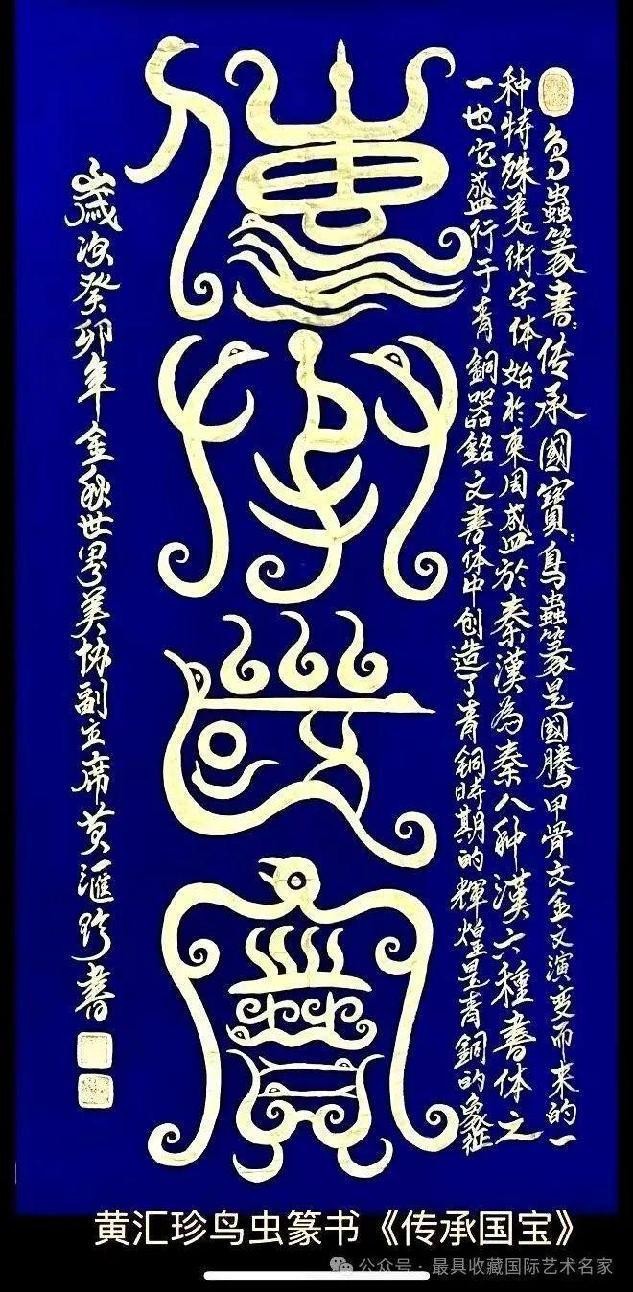 鸟蟲篆書：传承國寶：鳥蟲篆是國騰甲骨文金文演变而来的一
种特殊美術字体始於東周盛於秦漢為秦八种漢六種書体之
一也它盛行于青銅器銘文書体中创造了青铜时期的輝煌是青銅的象征
傳承國寶
歲次癸卯年金秋世界美协副主席黄滙珍書
黄汇珍鸟虫篆书《传承国宝》
公众号 · 最具收藏国际艺术名家